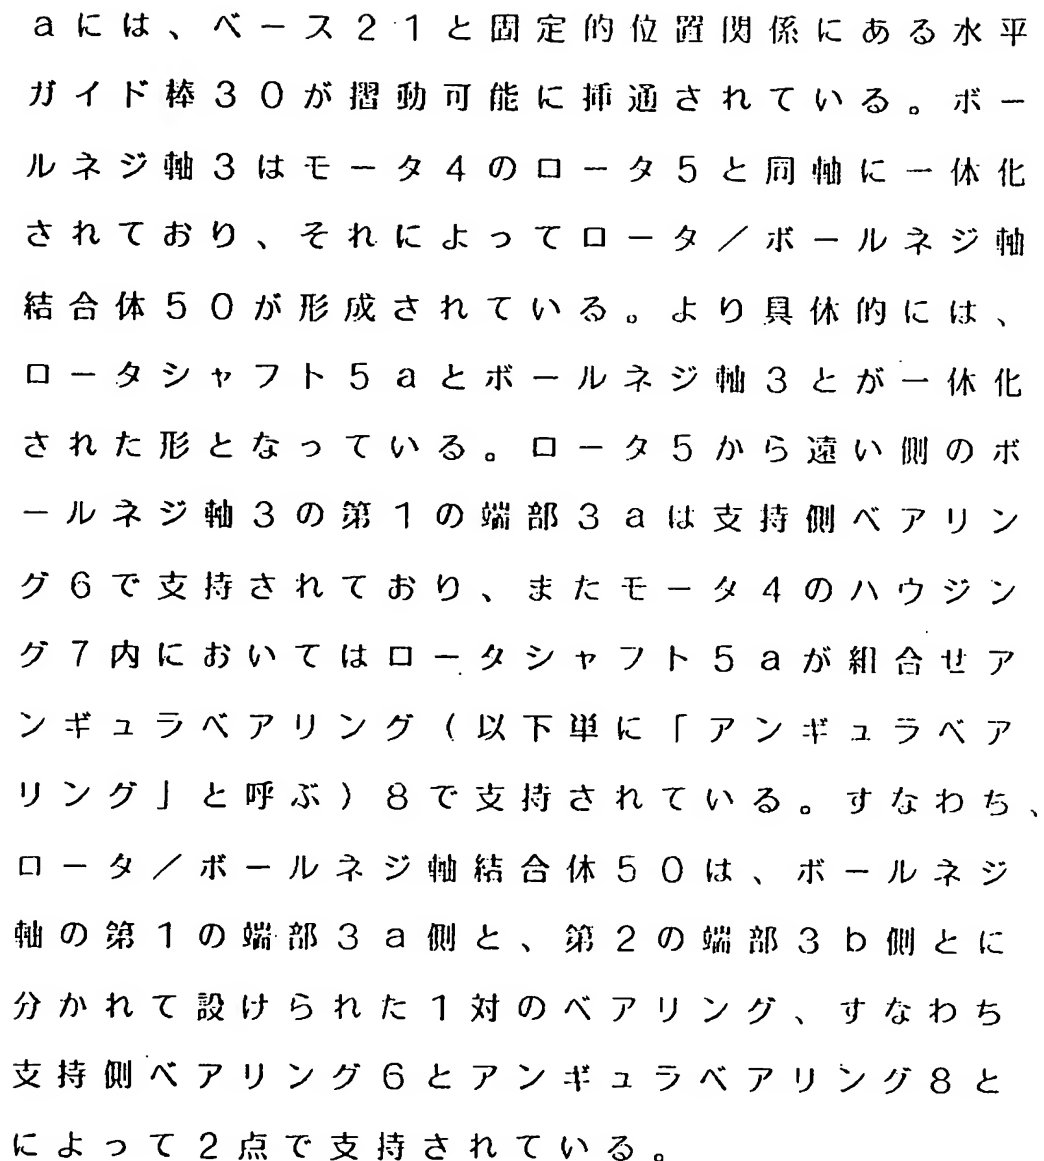 aには、ベース21と固定的位置関係にある水平
ガイド棒30が摺動可能に挿通されている。ボー
ルネジ軸3はモータ4のロータ5と同軸に一体化
されており、それによってロータ/ボールネジ軸
結合体50が形成されている。より具体的には、
ロータシャフト5aとボールネジ軸3とが一体化
された形となっている。ロータ5から遠い側のボ
ールネジ軸3の第1の端部3aは支持側ベアリン
グ6で支持されており、またモータ4のハウジン
グ7内においてはロータシャフト5aが組合せア
ンギュラベアリング(以下単に「アンギュラベア
リング」と呼ぶ)8で支持されている。すなわち、
ロータ/ボールネジ軸結合体50は、ボールネジ
軸の第1の端部3a側と、第2の端部3b側とに
分かれて設けられた1対のベアリング、すなわち
支持側ベアリング6とアンギュラベアリング8と
によって2点で支持されている。